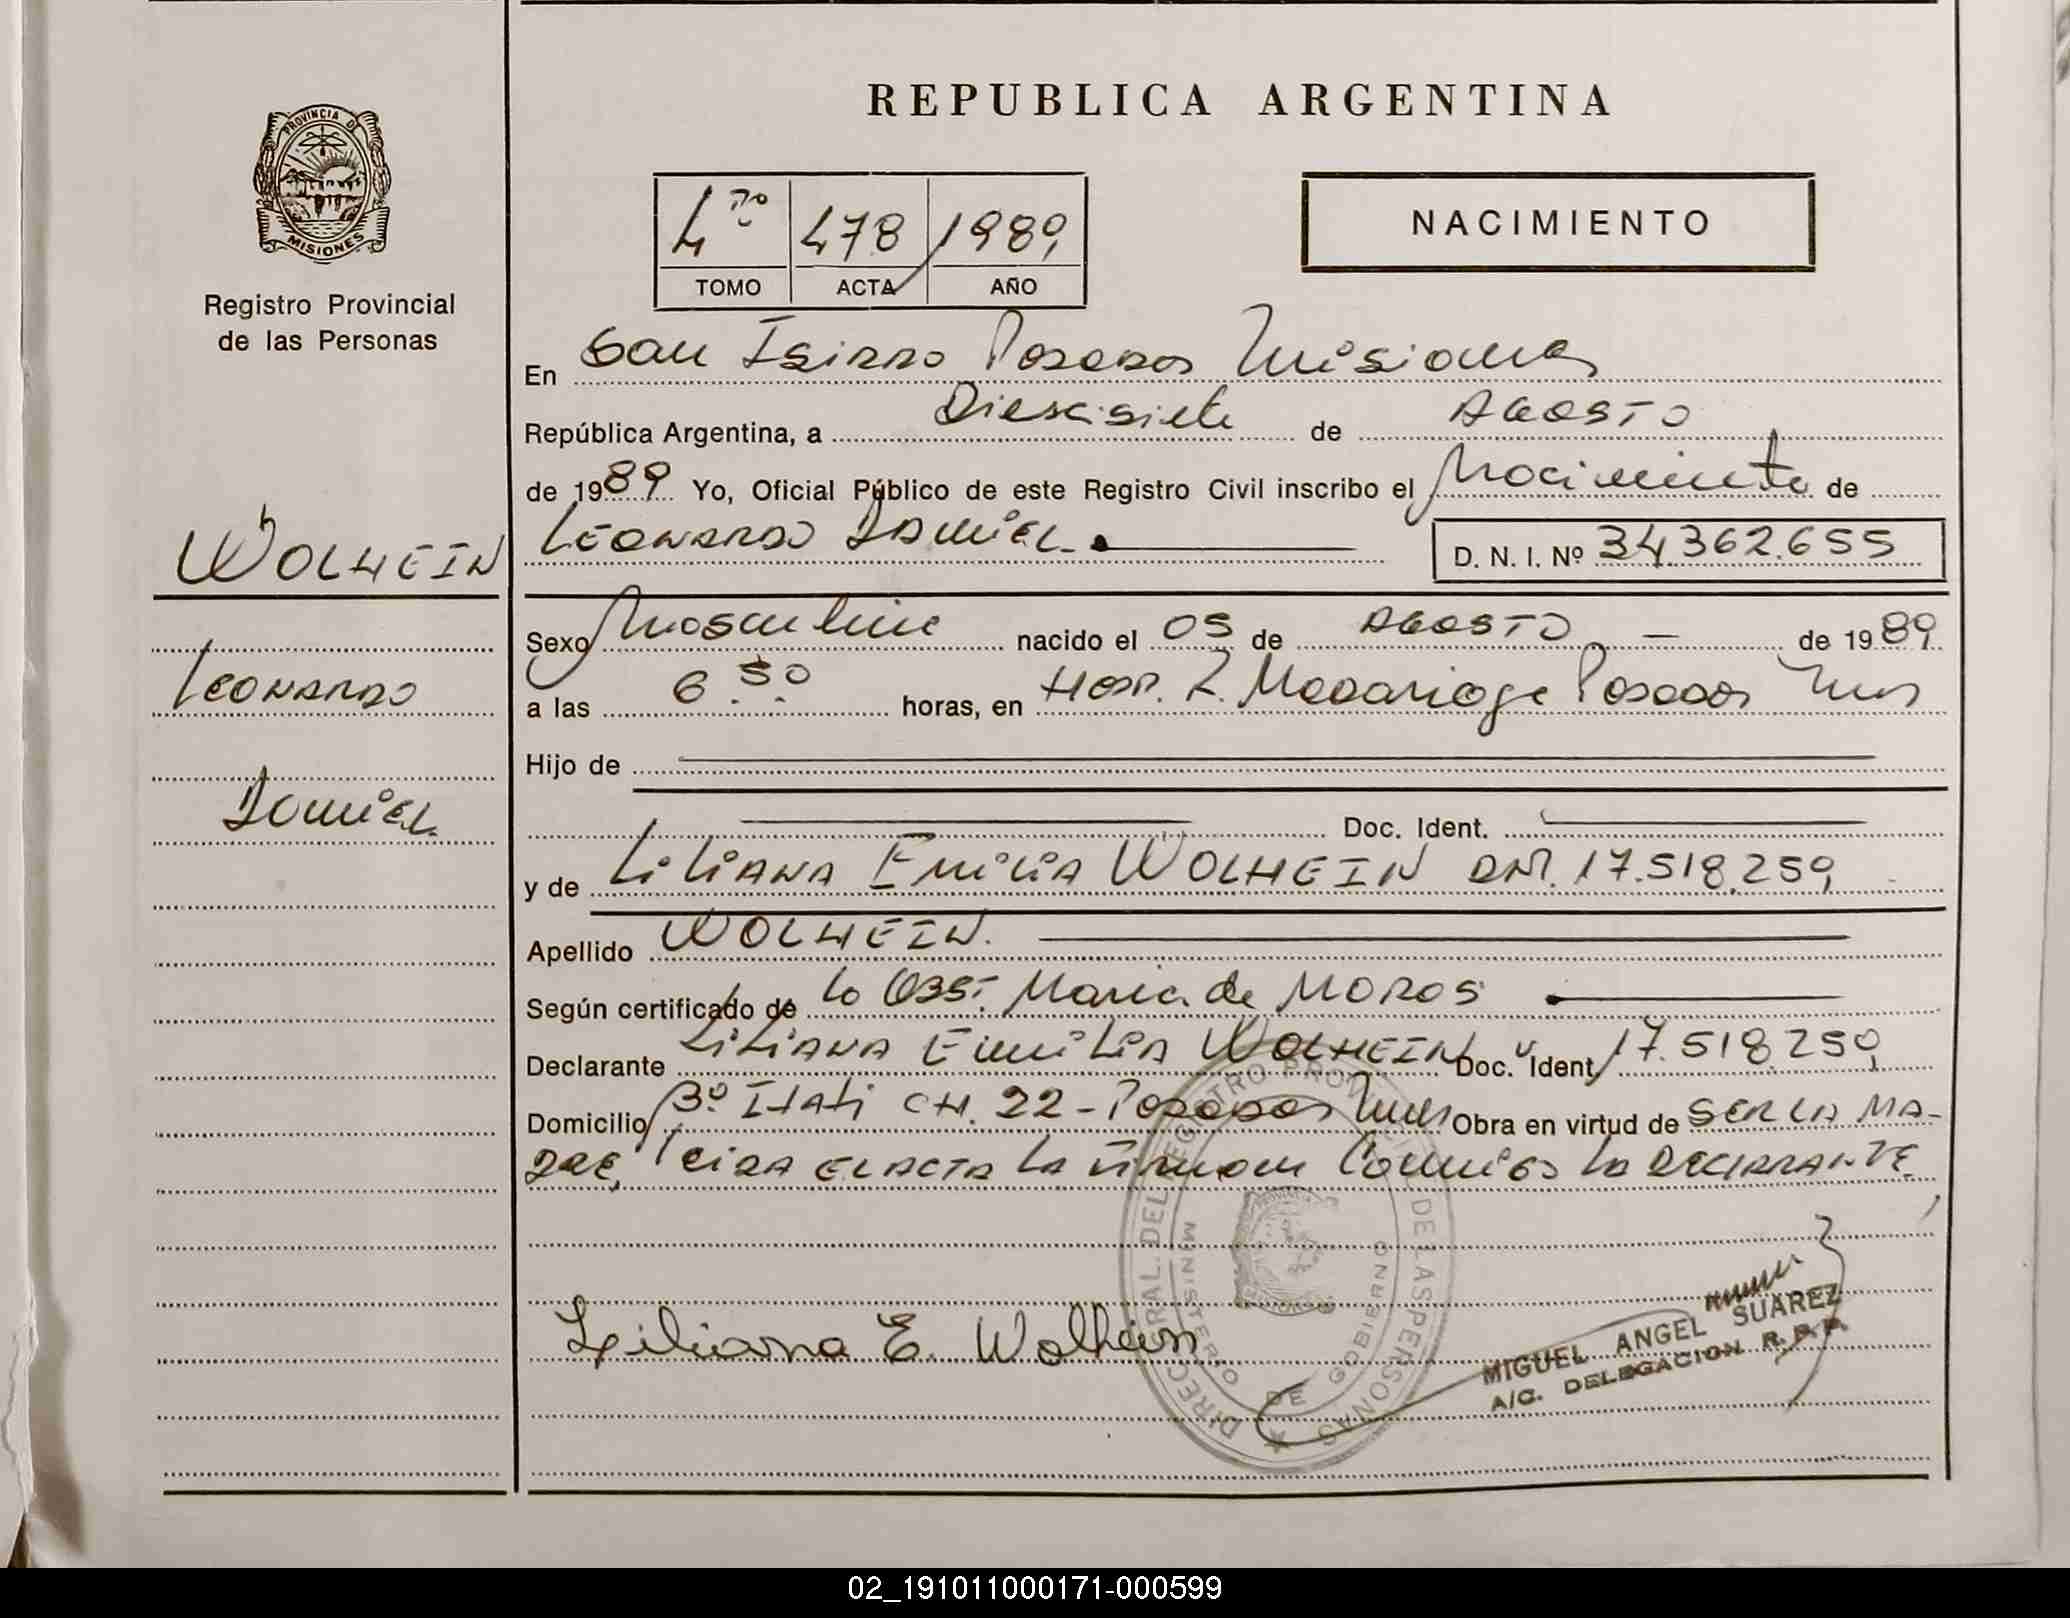 REPUBLICA ARGENTINA
PROVINCIA DE
MISIONES
Registro Provincial
de las Personas
4to 478 1989
TOMO ACTA AÑO
NACIMIENTO
En San Isidro Posadas Misiones
República Argentina, a Diescisiete de Agosto
de 1989 Yo, Oficial Público de este Registro Civil inscribo el Nacimiento de
WOLHEIN
Leonardo Daniel.
D. N. I. Nº 34.362.655
Leonardo
Daniel
Sexo Masculino nacido el 05 de Agosto de 1989
a las 6.30 horas, en Hosp. R. Madariaga Posadas Mnes
Hijo de
Doc. Ident.
y de Liliana Emilia WOLHEIN DNI. 17.518.259
Apellido WOLHEIN.
Según certificado de la Obst. Maria de Moros
Declarante Liliana Emilia WOLHEIN Doc. Ident. 17.518.259
Domicilio Bº Itati CH. 22 - Posadas Mnes Obra en virtud de SER LA MA-
DRE, Leida el acta la firman Conmigo la DECLARANTE
DIREC. GRAL. DEL REGISTRO PROVINCIAL DE LAS PERSONAS
MINISTERIO DE GOBIERNO
Liliana E. Wolhein
MIGUEL ANGEL SUAREZ
A/C. DELEGACION R. P. P.
02_191011000171-000599